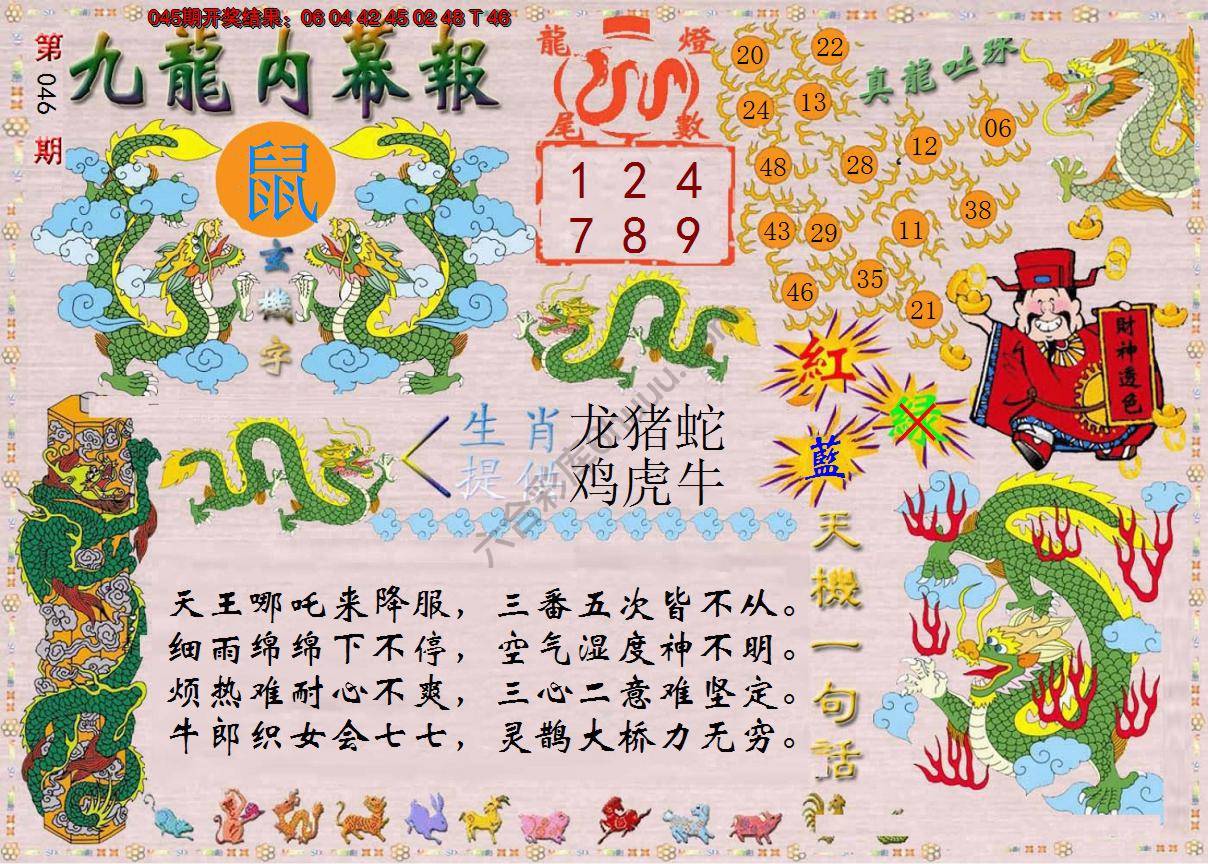 045期开奖结果：06 04 42 45 02 48 T 46
第046期
九龍内幕報
鼠
玄機字
龍燈
尾數
1 2 4
7 8 9
真龍吐珠
20 22
24 13
48 28 12 06
43 29 11 38
46 35 21
財神透色
紅
綠
藍
生肖 龙猪蛇
提供 鸡虎牛
天機一句話
天王哪吒来降服，三番五次皆不从。
细雨绵绵下不停，空气湿度神不明。
烦热难耐心不爽，三心二意难坚定。
牛郎织女会七七，灵鹊大桥力无穷。